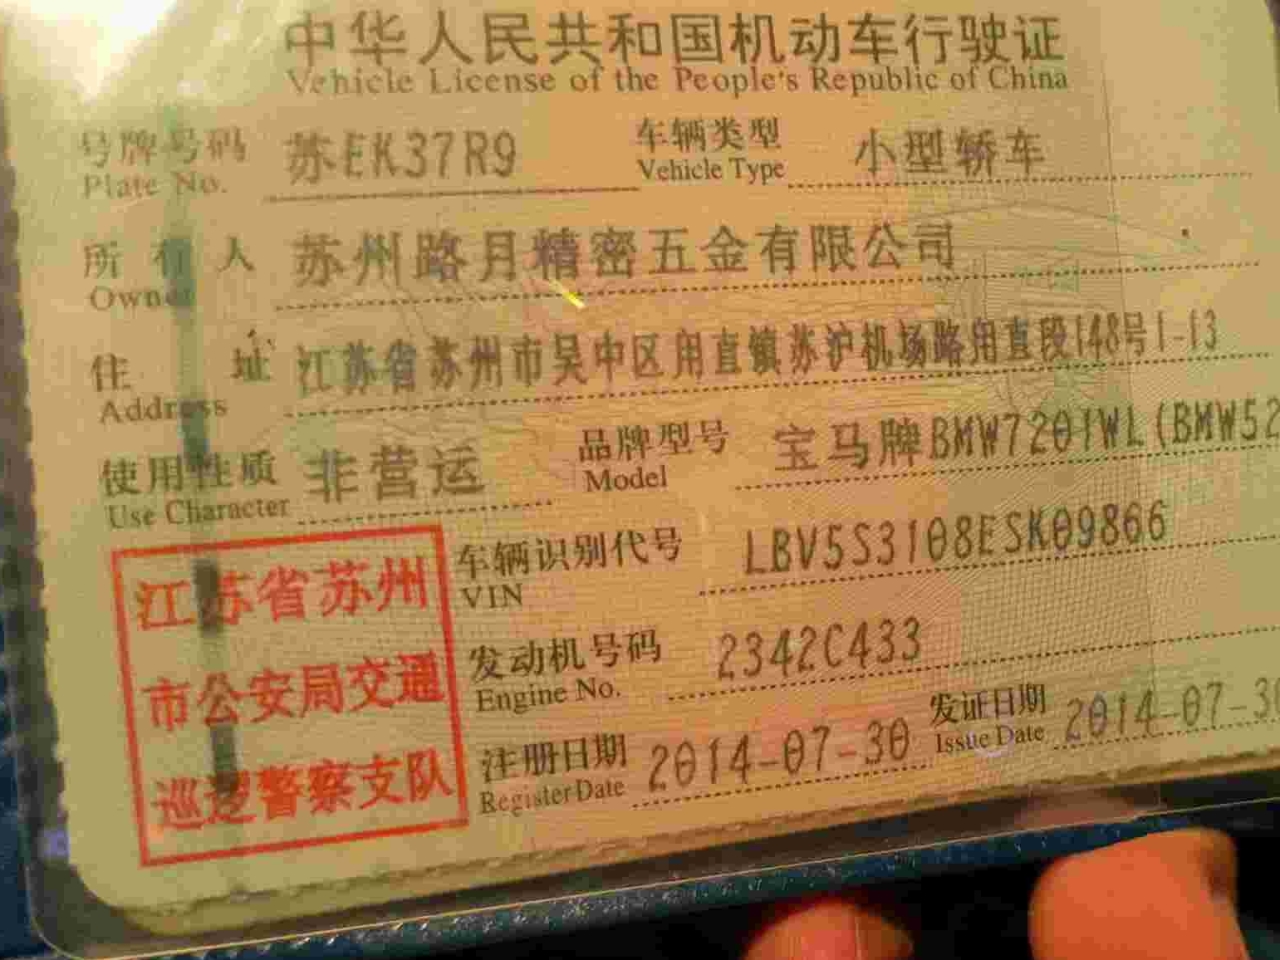 中华人民共和国机动车行驶证
Vehicle License of the People's Republic of China
号牌号码 苏EK37R9 车辆类型 小型轿车
Plate No. Vehicle Type
所有人 苏州路月精密五金有限公司
Owner
住址 江苏省苏州市吴中区甪直镇苏沪机场路甪直段148号1-13
Address
使用性质 非营运 品牌型号 宝马牌BMW7201WL(BMW52
Use Character Model
车辆识别代号 LBV5S3108ESK09866
VIN
发动机号码 2342C433
Engine No.
注册日期 2014-07-30 发证日期 2014-07-30
Register Date Issue Date
江苏省苏州
市公安局交通
巡逻警察支队